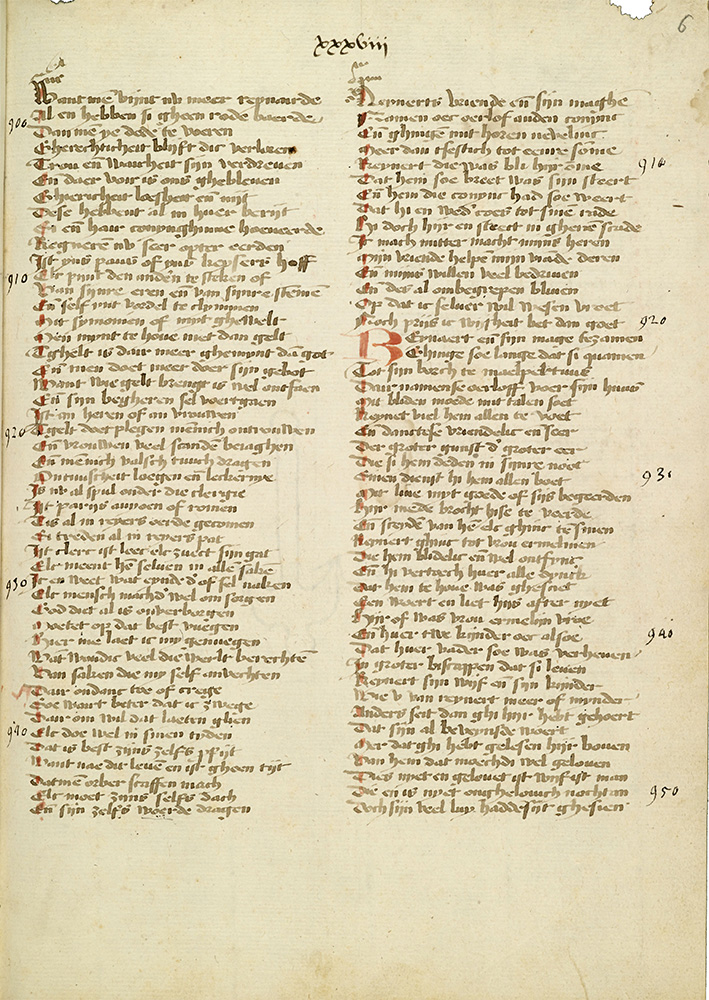 xxxviii
6
Want mē vint nv meer reynaerde
900
Al en hebben si gheen rode baerde
Dan mē ye dede te voeren
Gherechticheit blijft die verloren
Trou en̄ waerheit sijn verdreuen
En̄ daer voir is ons ghebleuen
Ghiericheit loesheit en̄ nijt
Dese hebbent al in huer berijt
En̄ haer conynghinne hoeuerde
Regneren nv seer opter eerden
Ist yns paeus of yns keysers hoff
910
Elc pijnt den anderē te steken of
Van sijnre eren en̄ van sijnre stemē
En̄ self mit vordel te clymmen
Mit symonien of mit ghewelt
Mē mynt te houe niet dan gelt
Tghelt is daer meer ghemynt dā got
En̄ men doet meer doer sijn gebot
Want wie gelt brengt is wel ontfaen
En̄ sijn begheren sel voertgaen
Ist an heren of an vrouwen
920
Tgelt doet plegen mēnich ontrouwen
En̄ vrouwen veel scanden beiaghen
En̄ mēnich valsch tuuch dragen
Onkuuscheit loegen en̄ leckernye
Is nv al spul onder die clergie
Ist parijs auyoen of romen
Tis al in reyers oerde gecomen
Si treden al in reyers pat
Ist clerc ist leec elc zuect sijn gat
Elc meent hē seluen in alle sake
930
Ic en weet wat eynde d'of sel naken
Elc mensch mach d' wel om sorgen
God diet al is onverborgen
Moetet op dat best vuegen
Hier me laet ic my genuegen
Wat woudic veel die werlt berechtē
Van saken die my self anvechten
Daer ondanc toe of crege
Soe waert beter dat ic zwege
Daer om wil dat laeten ghien
940
Elc doe wel in sinen tyden
Dat is best zijns zelfs p'fijt
Want nae dit leuen is gheen tijt
Datmē orber scaffen mach
Elc moet zijns selfs dach
En̄ sijn zelfs woerde dragen
Reynerts vriende en̄ sijn maghe
Namen oec oerlof anden conync
En̄ ghinge mit horen neuelinc
Meer dan tsestich tot eenre sōme
910
Reynert die was bli hijr ōme
Dat hem soe breet was sijn steert
En̄ hem die conync had soe weert
Dat hi en wed' coes tot sine rade
Hi doch hijr en steect in gheen scade
Ic mach mitter macht mijns heren
Mijn vriende helpe mijn viande deren
En̄ minē willen veel bedriuen
En̄ des al ombegrepen bliuen
Op dat ic seluer wil wesen vroet
920
Noch prijs ic wijsheit bet dan goet
REynaert en̄ sijn mage bezamen
Ghinge soe lange dat si quamen
Tot sijn borch te maelpertuus
Daer namense oerloff voer sijn huus
Mit bliden moede mit talen soet
Reynert viel hem allen te voet
En̄ dancte se vriendelic en̄ seer
Der groter gunst d' groter eer
Die si hem deden in sijnre noet
930
Sinen dienst hi hem allen boet
Mit liue myt goede of sijs begeerden
Hijr mede brocht hise te veerde
En̄ sciede van hē elc ghinc te sinen
Reynert ghinc tot vrou ermelinen
Die hem blidelic en̄ wel ontfinc
En̄ hi vertoech huer alle dynck
Dat hem te houe was ghesciet
Een woert en liet hijs after nyet
Hijr of was vrou ermelijn vroe
940
En̄ huer twe kijnder oec alsoe
Dat huer vader soe was verheuen
In groter blijscappen dat si leuen
Reynert sijn wijf en̄ sijn kijnder
Wie v van reynert meer of mynder
Anders seit dan ghi hijr hebt gehoert
Dat sijn al beveynsde woert
Mer dat ghi hebt gelesen hijr bouen
Van hem dat moechdi wel gelouen
Dies nyet en gelouet ist wijf ist man
950
Die en is nyet ongheloeuich nochtan
Doch sijn veel luy haddesijt ghesien